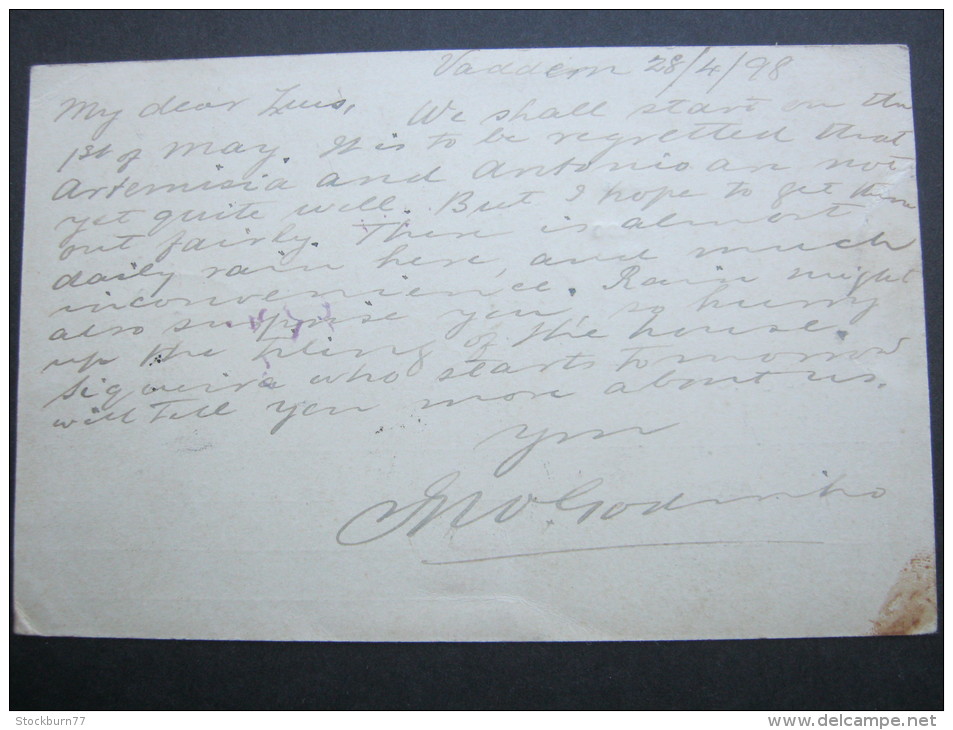 Vaddem 28/4/98
My dear Luis, We shall start on the
1st of May. It is to be regretted that
Artemisia and Antonio are not
yet quite well. But I hope to get them
out fairly. There is almost
daily rain here, and much
inconvenience. Rain might
also surprise you, so hurry
up the tiling of the house.
Siqueira who starts tomorrow
will tell you more about us.
Godinho
Stockburn77
www.delcampe.net